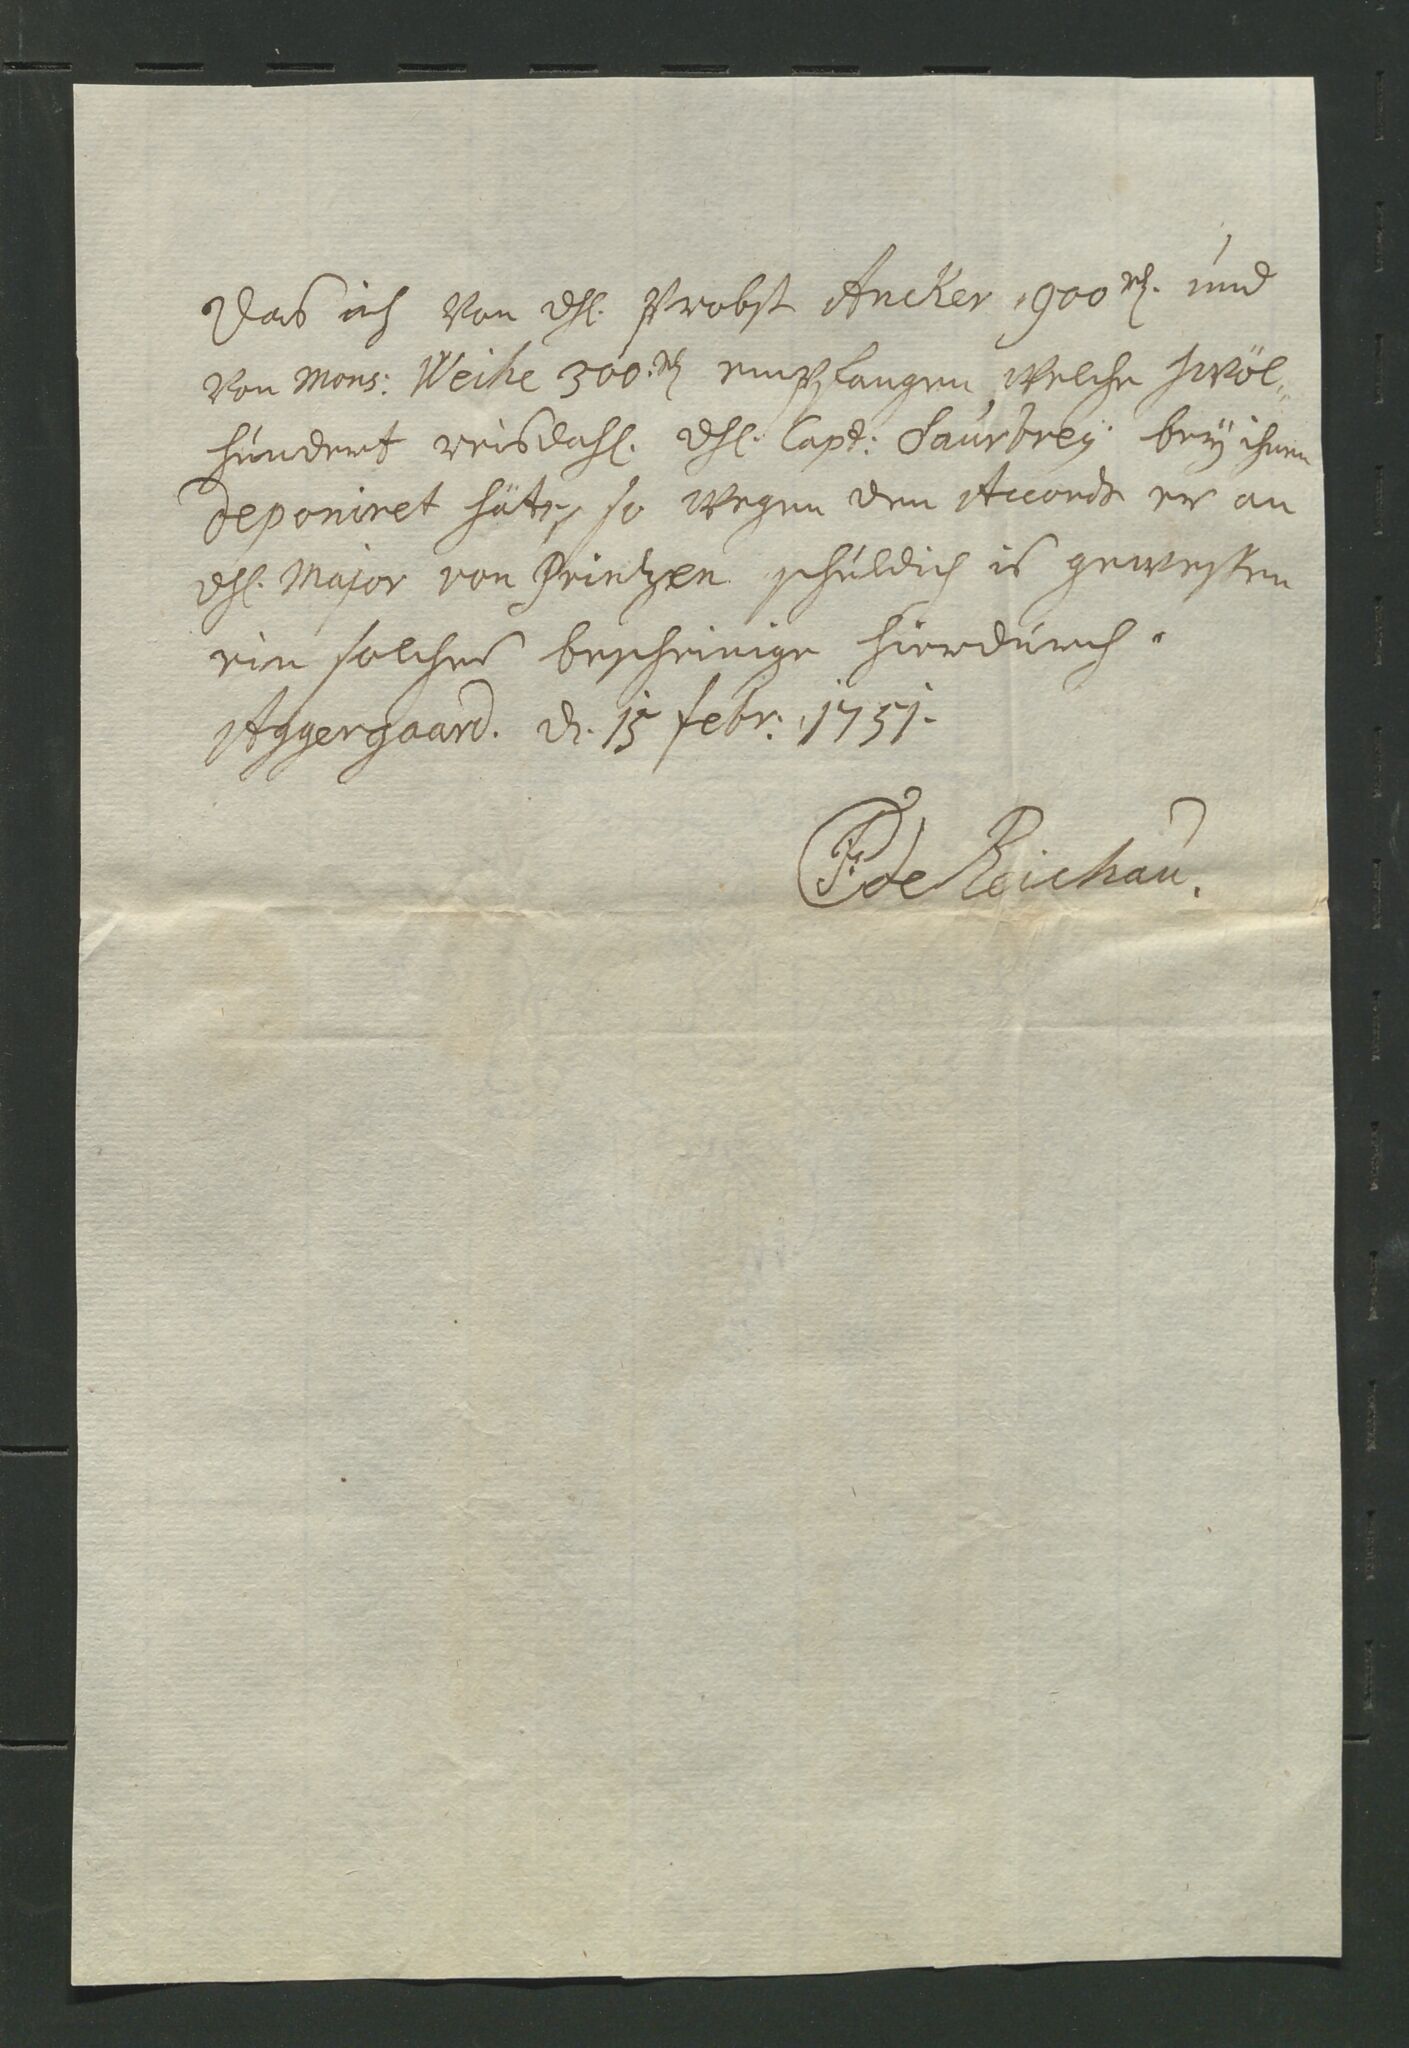 Das ich von dhl. Probst Ancker 900 rh. und
von Mons: Weihe 300. rh empfangen, welche zwöl„
hundert reisdahl. dhl. Capt: Saurbrey bey ihnen
deponiret häte, so wegen den Accorde er an
dhl. Major von Printzen schuldich is gewessen
ein solches bescheinige hierdurch.
Aggergaard. d. 15 febr: 1751.
F: de Reichau.